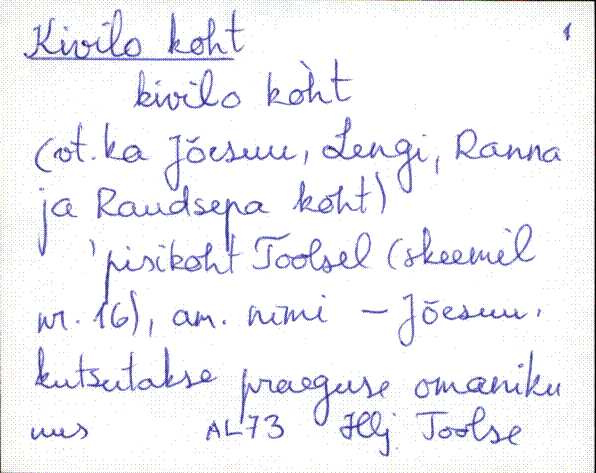 Kivilo koht 1
kivilo kòht
(vt. ka Jõesuu, Lengi, Ranna
ja Raudsepa koht)
'pisikoht Toolsel (skeemil
nr. 16), am. nimi – Jõesuu,
kutsutakse praeguse omaniku
AL73 Hlj Toolse